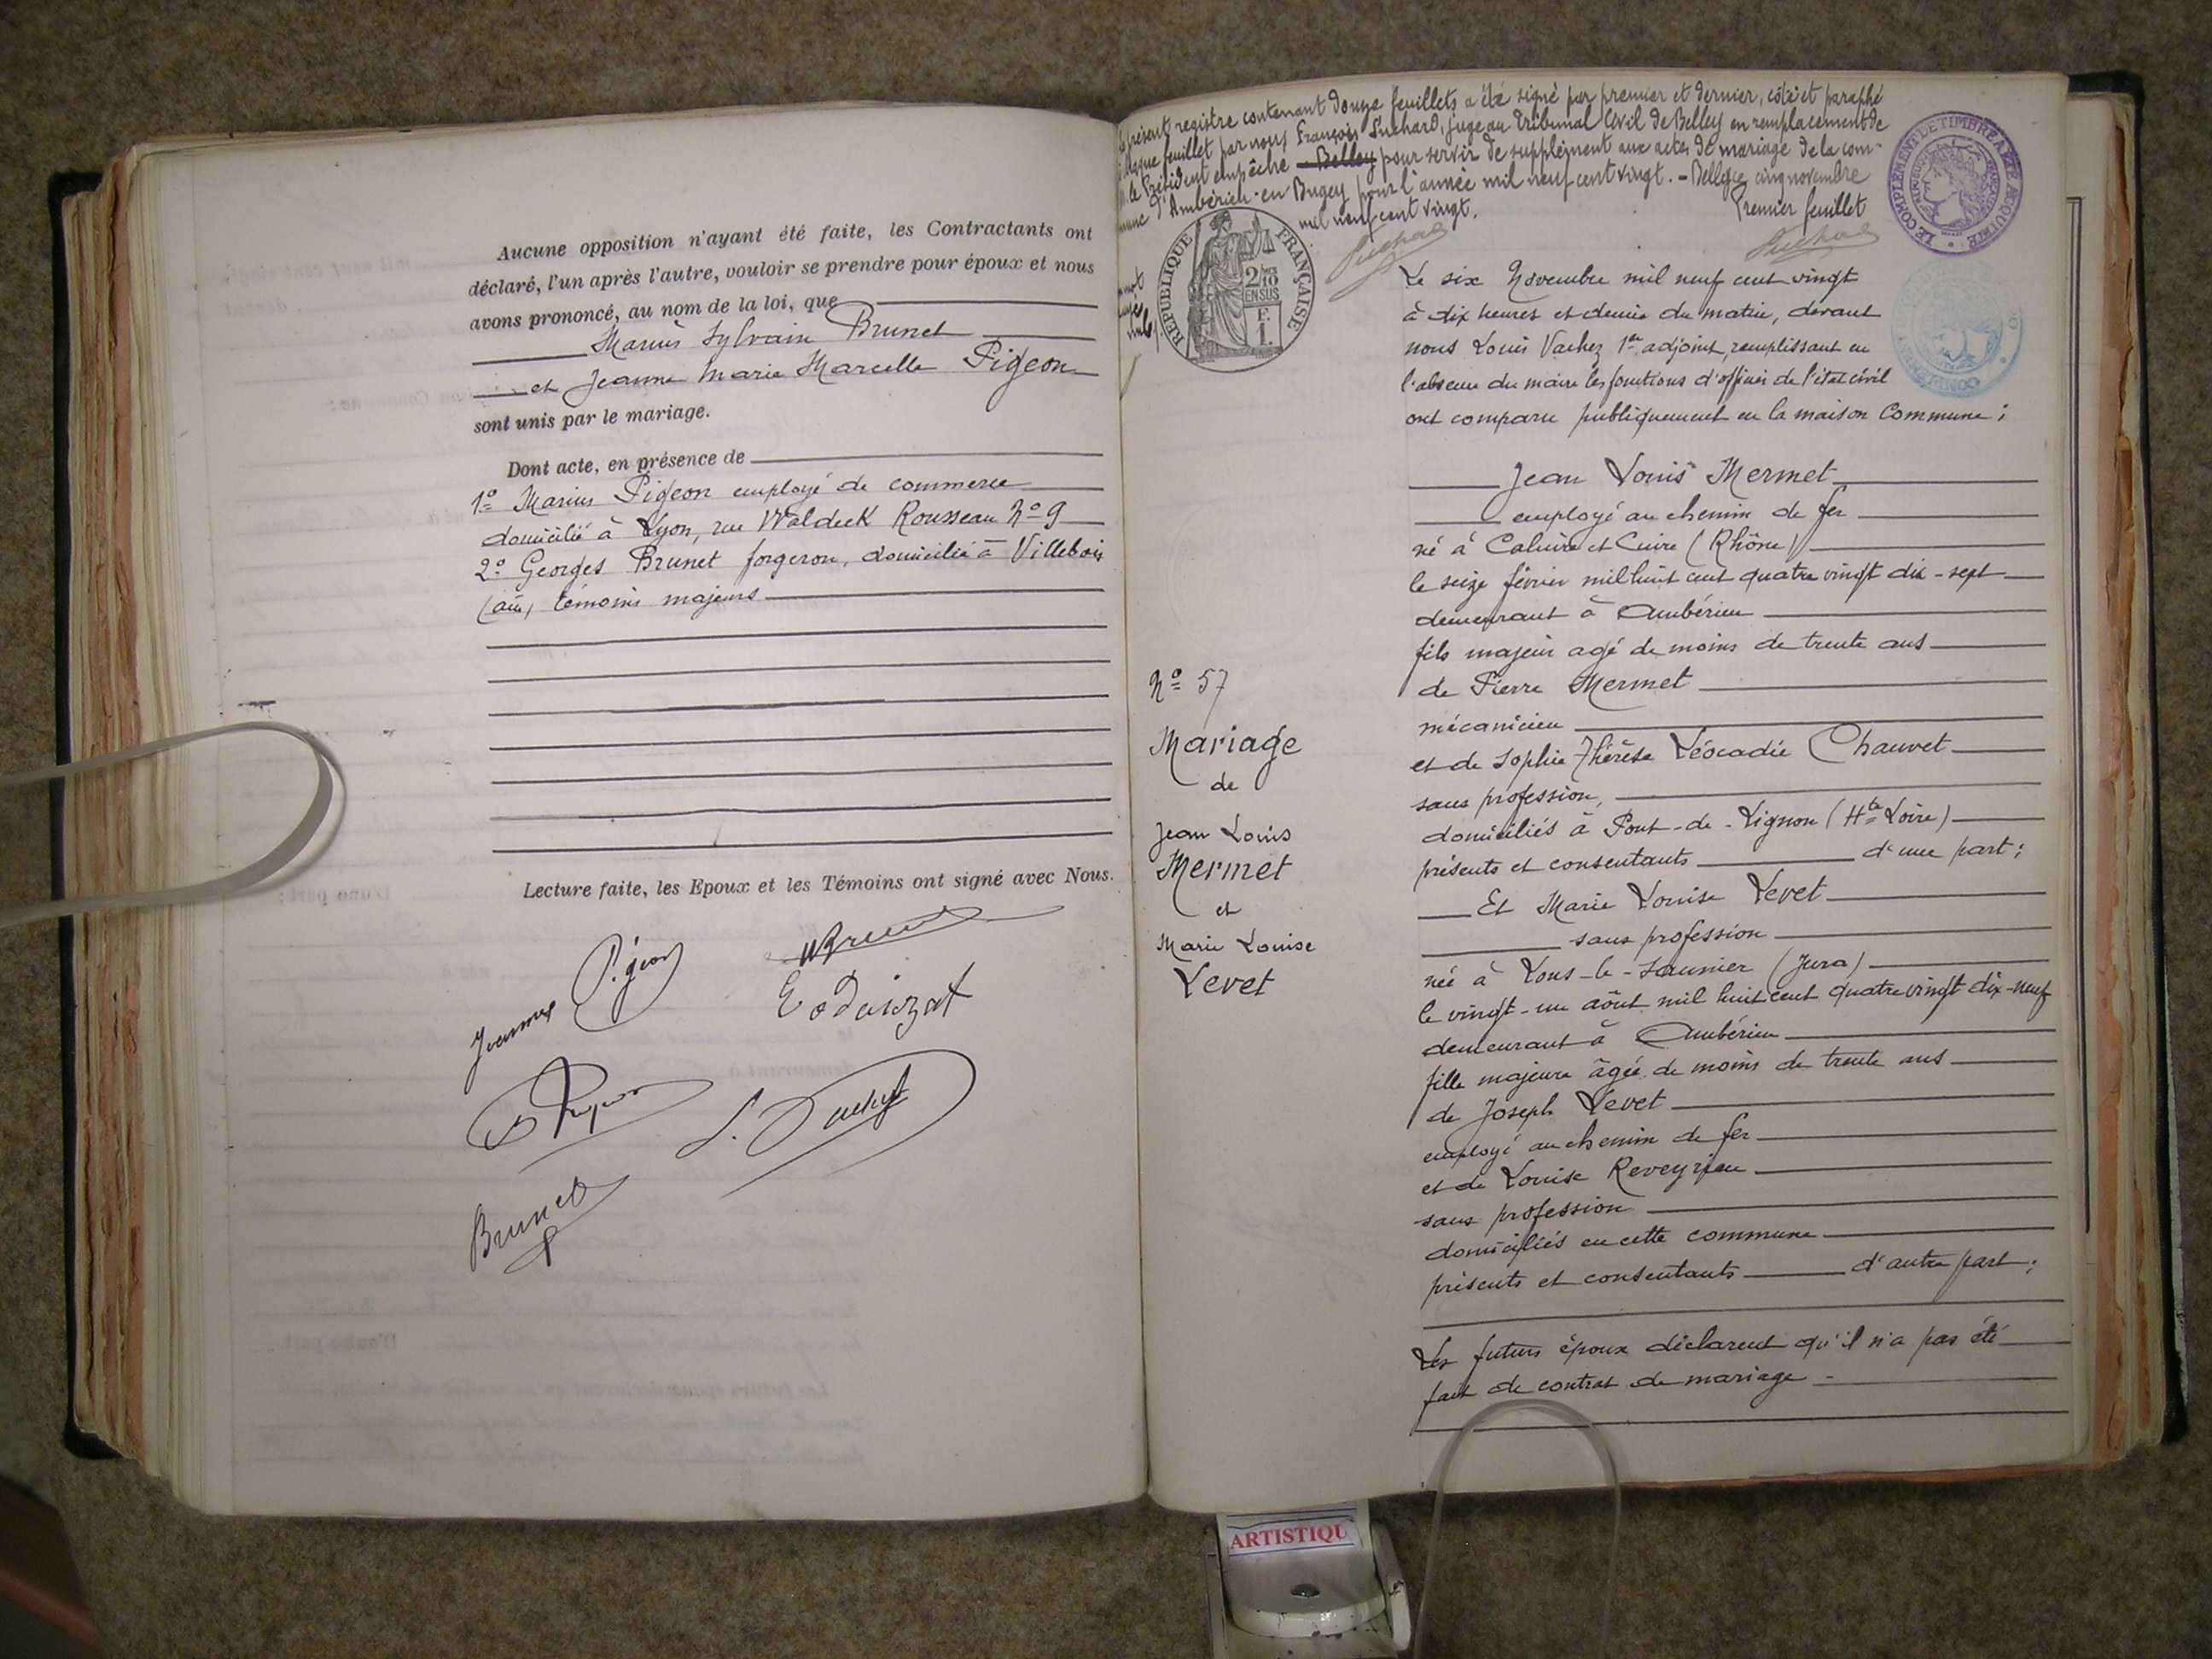 Aucune opposition n'ayant été faite, les Contractants ont
déclaré, l'un après l'autre, vouloir se prendre pour époux et nous
avons prononcé, au nom de la loi, que
Marius Sylvain Brunet
et Jeanne Marie Marcelle Pigeon
sont unis par le mariage.
Dont acte, en présence de
1º Marius Pigeon employé de commerce
domicilié à Lyon, rue Waldeck Rousseau Nº 9
2º Georges Brunet forgeron, domicilié à Villebois
(ain) témoins majeurs
Lecture faite, les Epoux et les Témoins ont signé avec Nous.
Jeanne Pigeon
Brunet
présent registre contenant douze feuillets a été signé par premier et dernier, côté et paraphé
chaque feuillet par nous François Juge au Tribunal Civil de Belley en remplacement de
M. le Président empêché Belley pour servir de supplément aux actes de mariage de la com-
mune d'Ambérieu-en Bugey pour l'année mil neuf cent vingt. - Belley cinq novembre
mil neuf cent vingt.
Premier feuillet
LE COMPLEMENT DE TIMBRE A ETE ACQUITTE
REPUBLIQUE FRANÇAISE
2/10
EN SUS
F.
1.
Le six Novembre mil neuf cent vingt
à dix heures et demie du matin, devant
nous Louis Vachez 1er adjoint, remplissant en
l'absence du maire les fonctions d'officier de l'état civil
ont comparu publiquement en la maison Commune :
Jean Louis Mermet
employé au chemin de fer
né à Caluire et Cuire (Rhône)
le seize février mil huit cent quatre vingt dix-sept
demeurant à Ambérieu
fils majeur agé de moins de trente ans
de Pierre Mermet
mécanicien
et de Sophie Thérèse Léocadie Chauvet
sans profession,
domiciliés à Pont-de-Lignon (Hte Loire)
présents et consentants d'une part ;
Et Marie Louise Levet
sans profession
née à Lons-le-Saunier (Jura)
le vingt-un août mil huit cent quatre vingt dix-neuf
demeurant à Ambérieu
fille majeure âgée de moins de trente ans
de Joseph Levet
employé au chemin de fer
et de Louise Reveyrieu
sans profession
domiciliés en cette commune
présents et consentants d'autre part ;
Les futurs époux déclarent qu'il n'a pas été
fait de contrat de mariage
Nº 57
Mariage
de
Jean Louis
Mermet
et
Marie Louise
Levet
ARTISTIQU